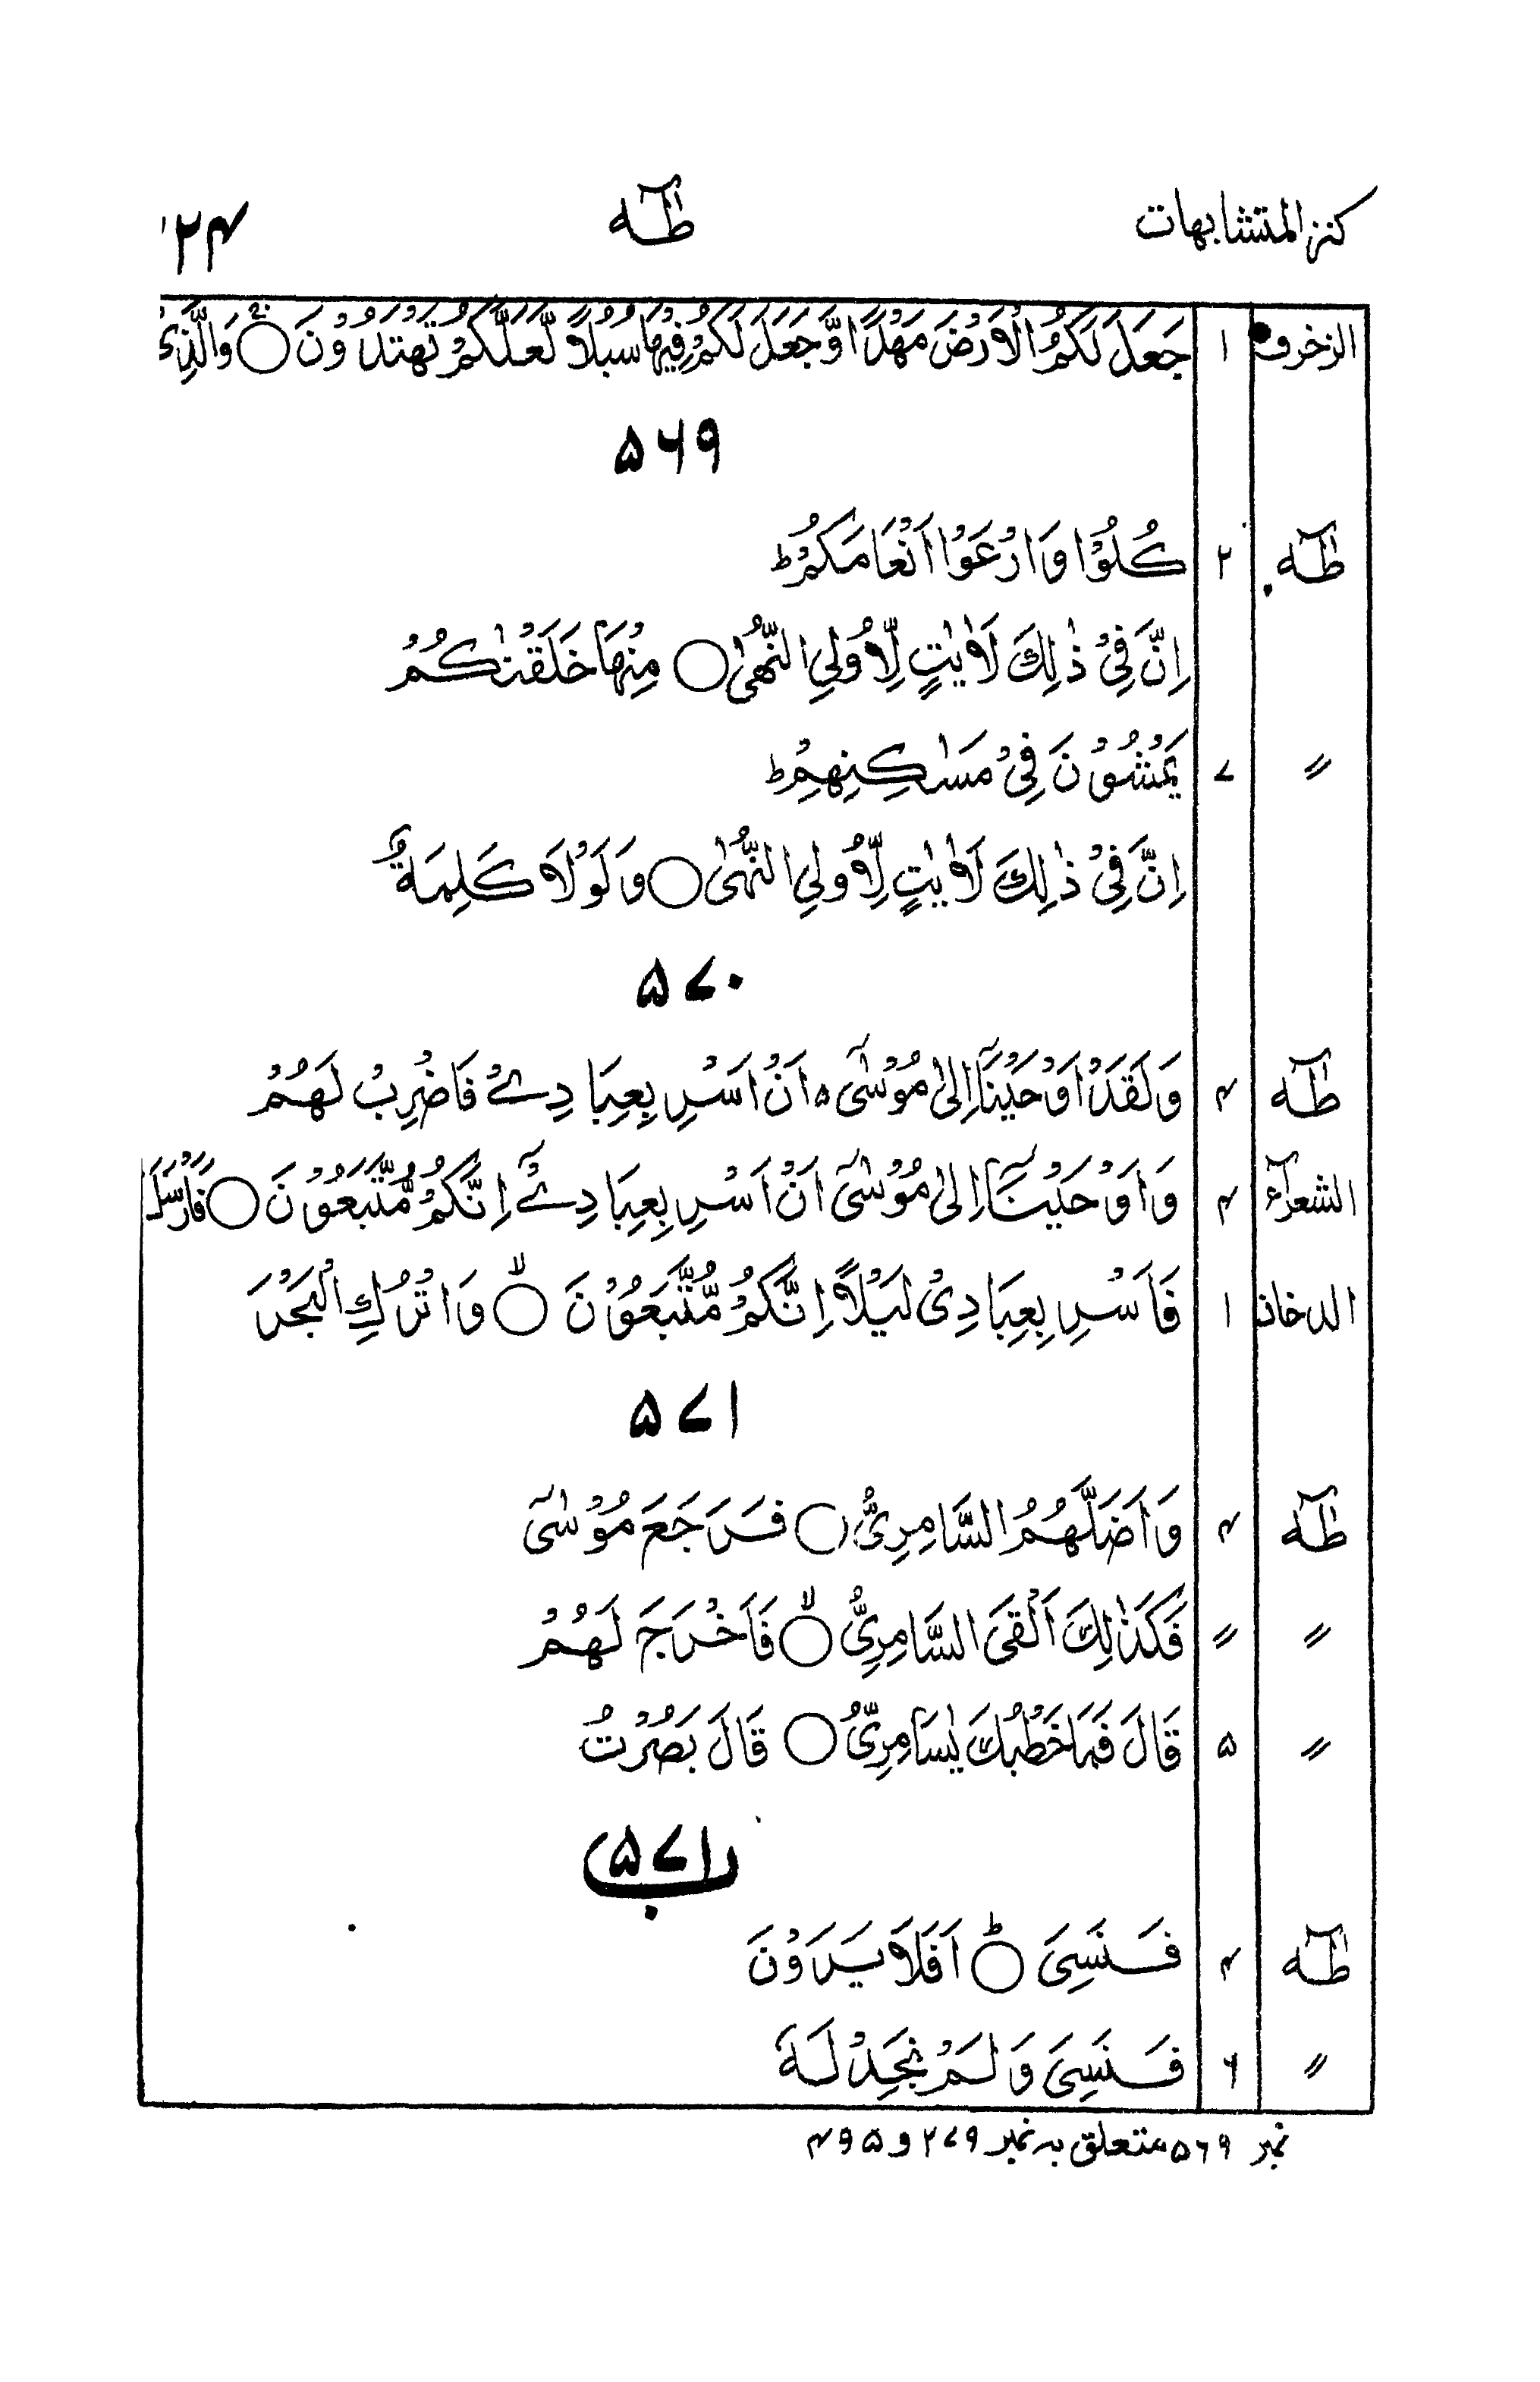 كنز المتشابهات طٰهٰ ۲۴
الزخرف ۱ جَعَلَ لَكُمُ الْاَرْضَ مَهْدًا وَّجَعَلَ لَكُمْ فِيْهَا سُبُلًا لَّعَلَّكُمْ تَهْتَدُوْنَ ○ وَالَّذِىْ
۵۶۹
طٰهٰ ۲ كُلُوْا وَارْعَوْا اَنْعَامَكُمْ ؕ
اِنَّ فِىْ ذٰلِكَ لَاٰيٰتٍ لِّاُولِى النُّهٰى ○ مِنْهَا خَلَقْنٰكُمْ
〃 ۷ يَمْشُوْنَ فِىْ مَسٰكِنِهِمْ ؕ
اِنَّ فِىْ ذٰلِكَ لَاٰيٰتٍ لِّاُولِى النُّهٰى ○ وَلَوْلَا كَلِمَةٌ
۵۷۰
طٰهٰ ۴ وَلَقَدْ اَوْحَيْنَآ اِلٰى مُوْسٰٓى ۵ اَنْ اَسْرِ بِعِبَادِىْ فَاضْرِبْ لَهُمْ
الشعرآء ۴ وَاَوْحَيْنَآ اِلٰى مُوْسٰٓى اَنْ اَسْرِ بِعِبَادِىْٓ اِنَّكُمْ مُّتَّبَعُوْنَ ○ فَاَرْسَلَ
الدخان ۱ فَاَسْرِ بِعِبَادِىْ لَيْلًا اِنَّكُمْ مُّتَّبَعُوْنَ ○ۙ وَاتْرُكِ الْبَحْرَ
۵۷۱
طٰهٰ ۴ وَاَضَلَّهُمُ السَّامِرِىُّ ○ فَرَجَعَ مُوْسٰٓى
〃 〃 فَكَذٰلِكَ اَلْقَى السَّامِرِىُّ ○ۙ فَاَخْرَجَ لَهُمْ
〃 ۵ قَالَ فَمَا خَطْبُكَ يٰسَامِرِىُّ ○ قَالَ بَصُرْتُ
۵۷۱ ب
طٰهٰ ۴ فَنَسِىَ ○ؕ اَفَلَا يَرَوْنَ
〃 ۶ فَنَسِىَ وَلَمْ نَجِدْ لَهٗ
نمبر ۵۶۹ متعلق بہ نمبر ۲۷۹ و ۴۹۵